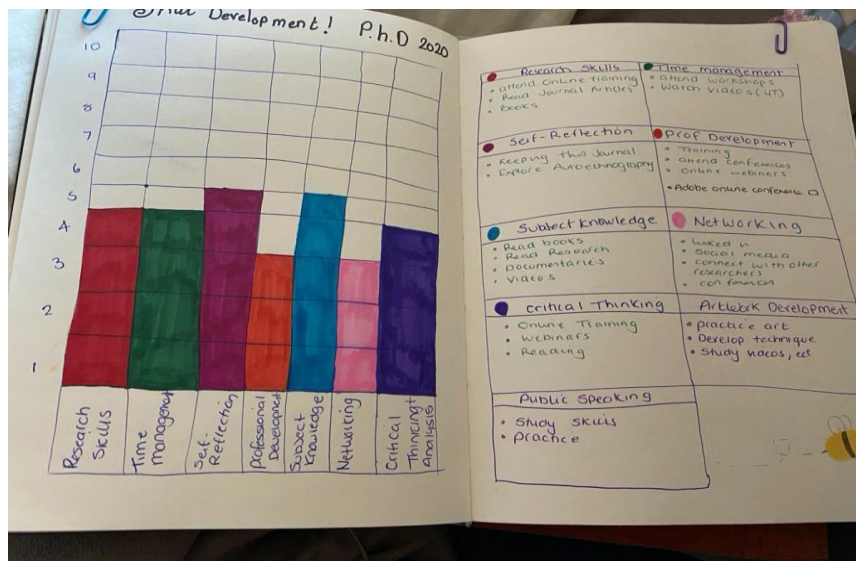 Skill Development! P.h.D 2020
10
9
8
7
6
5
4
3
2
1
Research
Skills
Time
managemet
Self-
Reflection
professional
Development
Subject
Knowledge
Networking
Critical
Thinking+
Analysis
Research Skills
• attend Online training
• Read Journal Articles
• Books
Time management
• attend workshops
• Watch videos (YT)
Self-Reflection
• Keeping this Journal.
• Explore Autoethnography
Prof Development
• Training
• attend conferences
• Online webinars
• Adobe online conference
Subject Knowledge
• Read books
• Read Research
• Documentaries
• Videos
Networking
• Linked in
• Social media
• connect with other
researchers
• conferences
Critical Thinking
• Online Training
• Webinars
• Reading
Artwork Development
• practice art
• Develop technique
• Study videos, ect
Public Speaking
• Study Skills
• practice